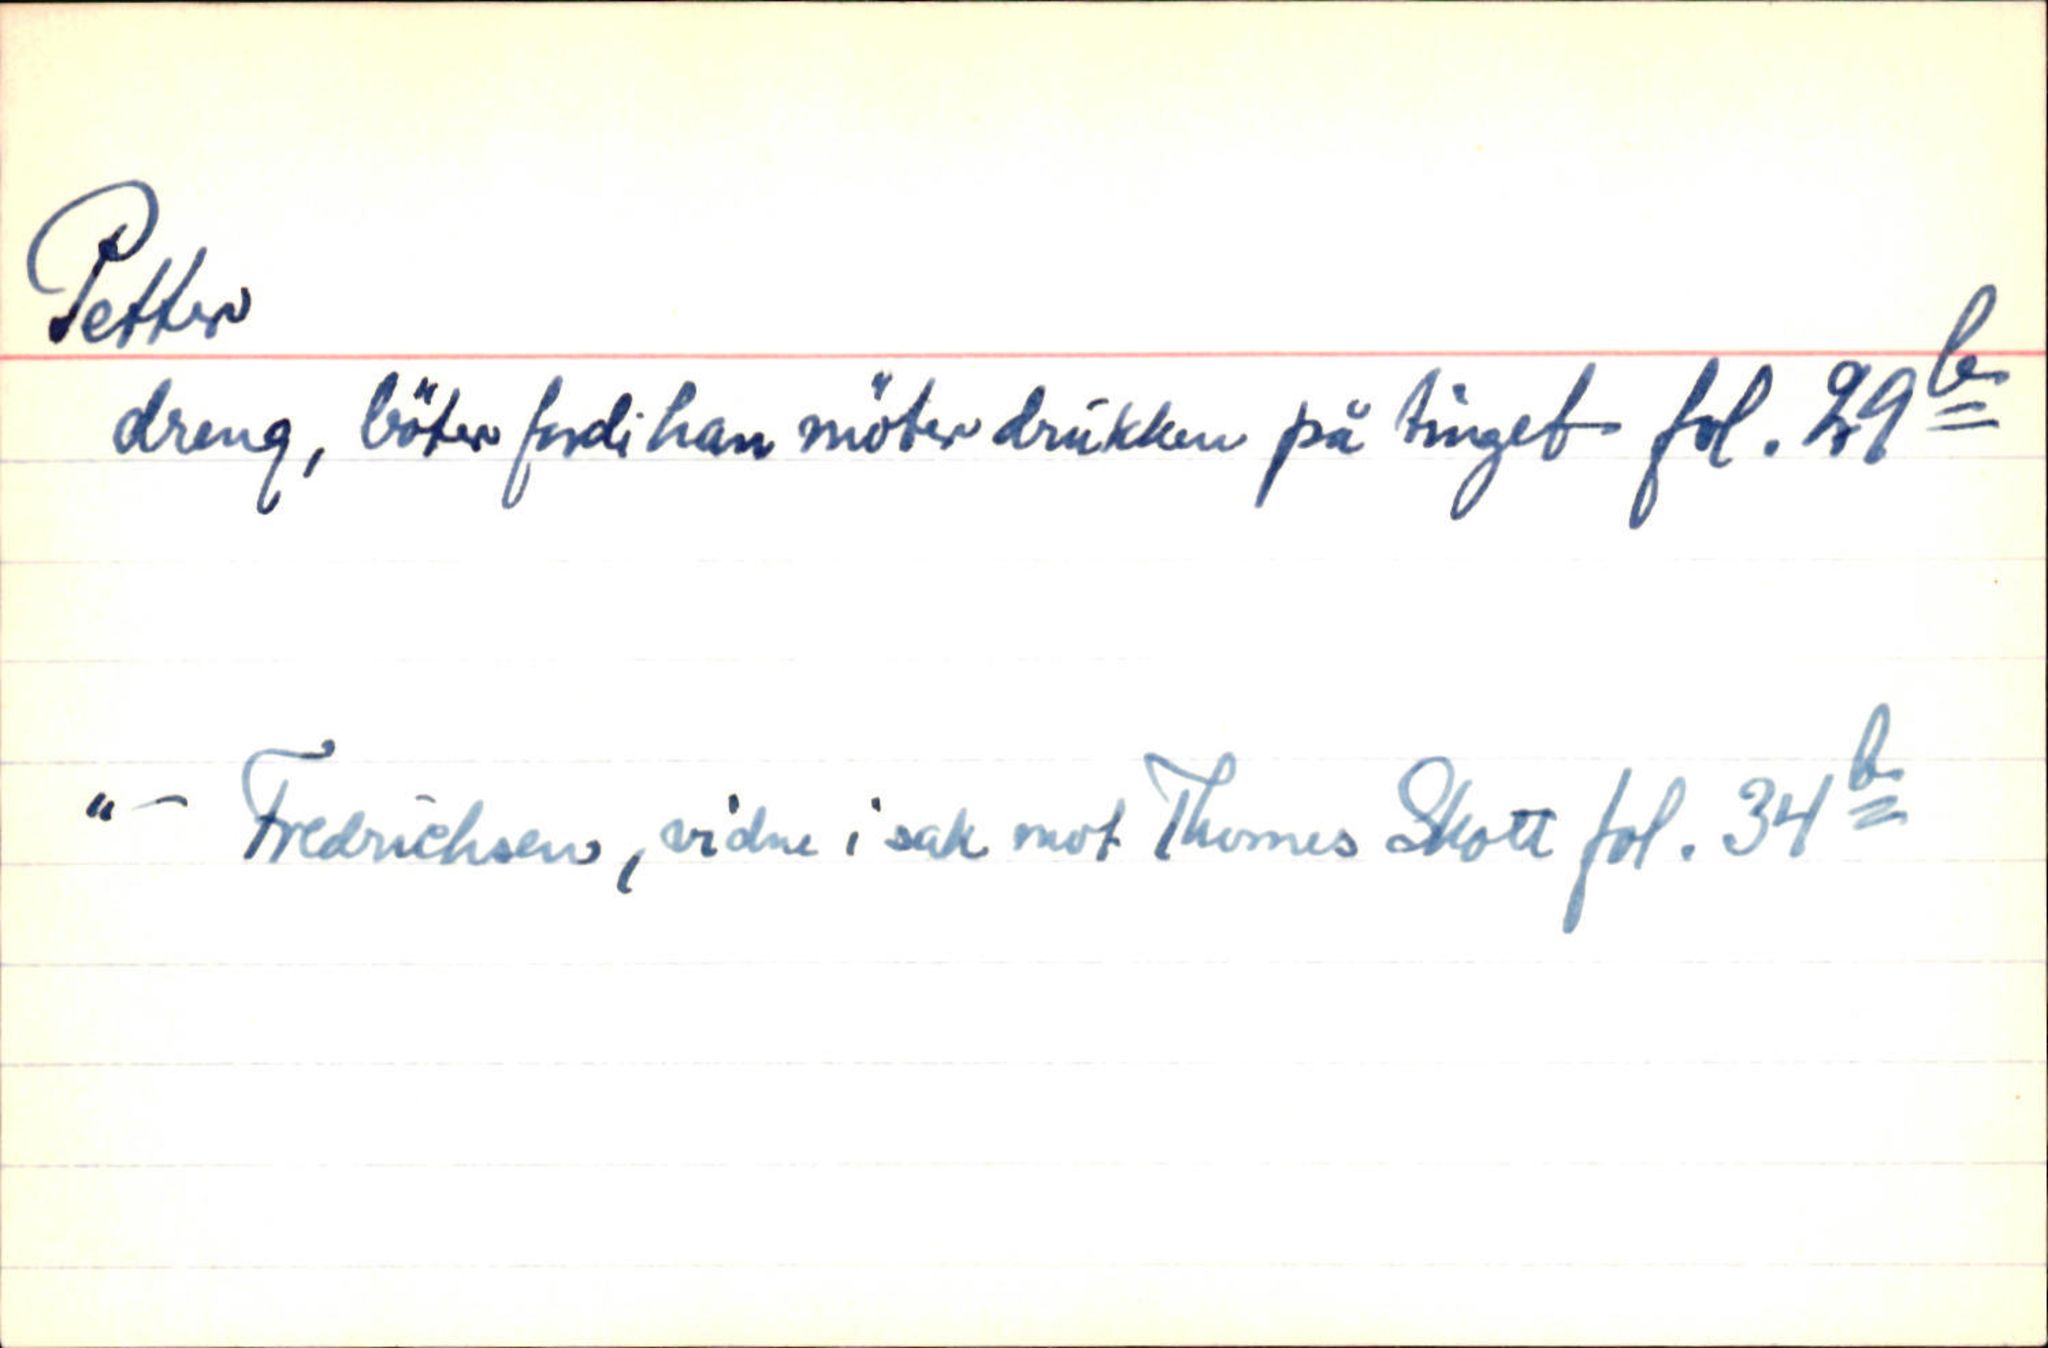 Petter
dreng, böter fordi han möter drukken på tinget fol. 29 b
"- Fredrichsen, vidne i sak mot Thomes Skott fol. 34 b